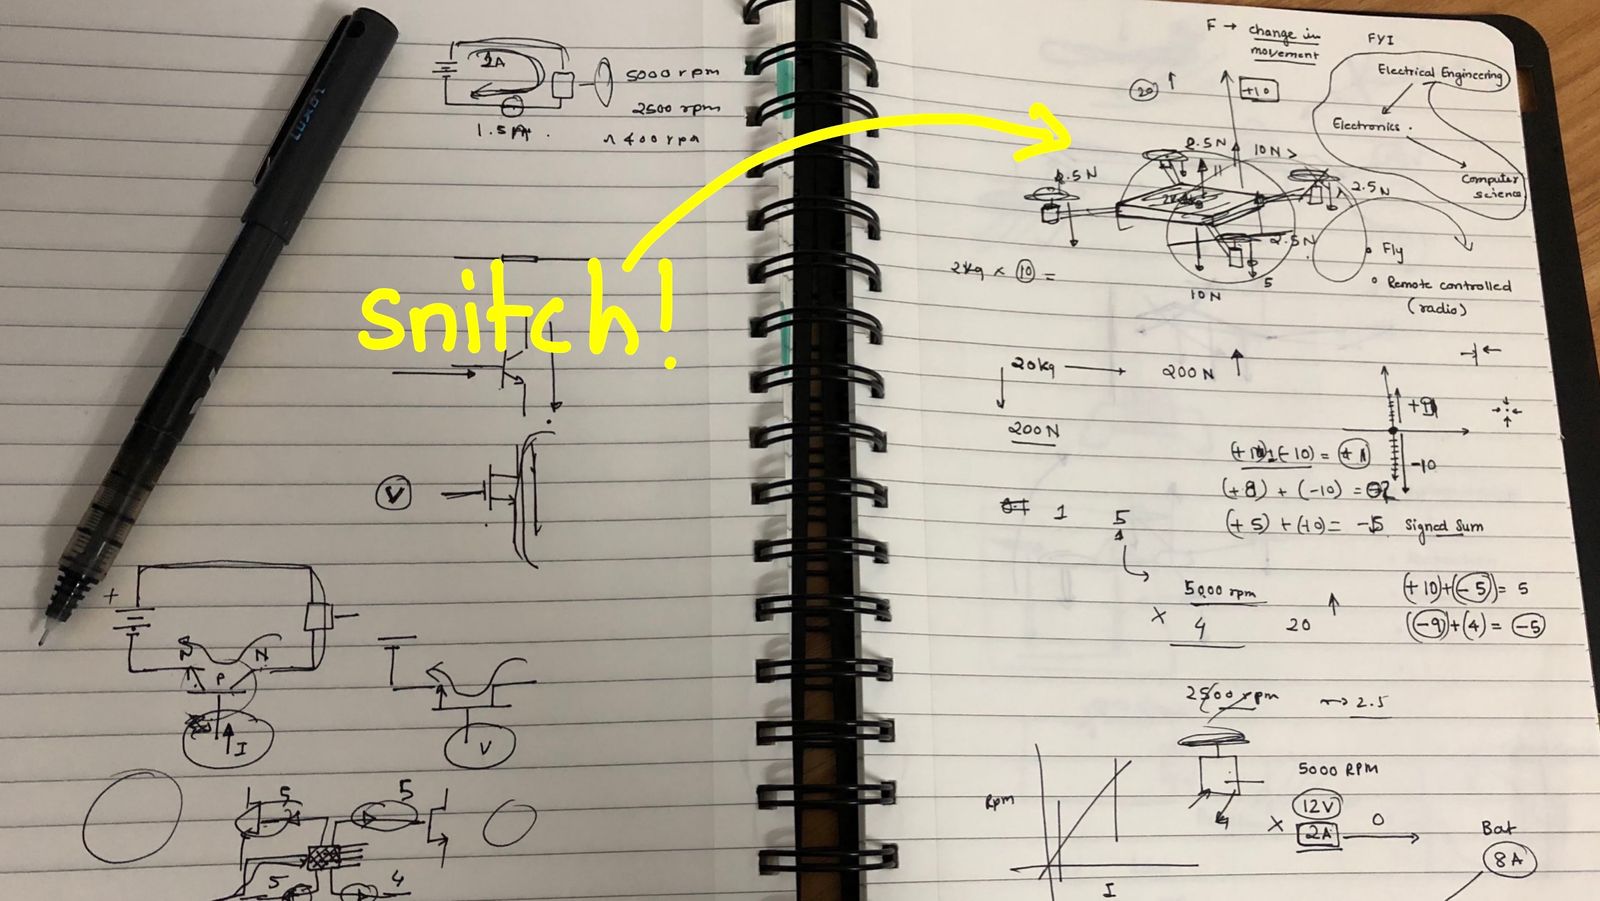 1A
5000 rpm
2500 rpm
1.5A
snitch!
V
+
N
N
P
I
V
5
5
5
4
F → change in
movement
FYI
Electrical Engineering
Electronics
Computer
science
20 ↑
+10
2.5N
10N
2.5N
2.5N
2.5N
10N
5
Fly
Remote controlled
(radio)
2kg × 10 =
20kg → 200N ↑
200N
-10
(+8) + (-10) =
1 5
-5 Signed Sum
5000 rpm
× 4 20 ↑
(+10)+(-5) = 5
(-9)+(4) = -5
2500 rpm → 2.5
5000 RPM
12V
× 2A 0
Bat
8A
Rpm
I